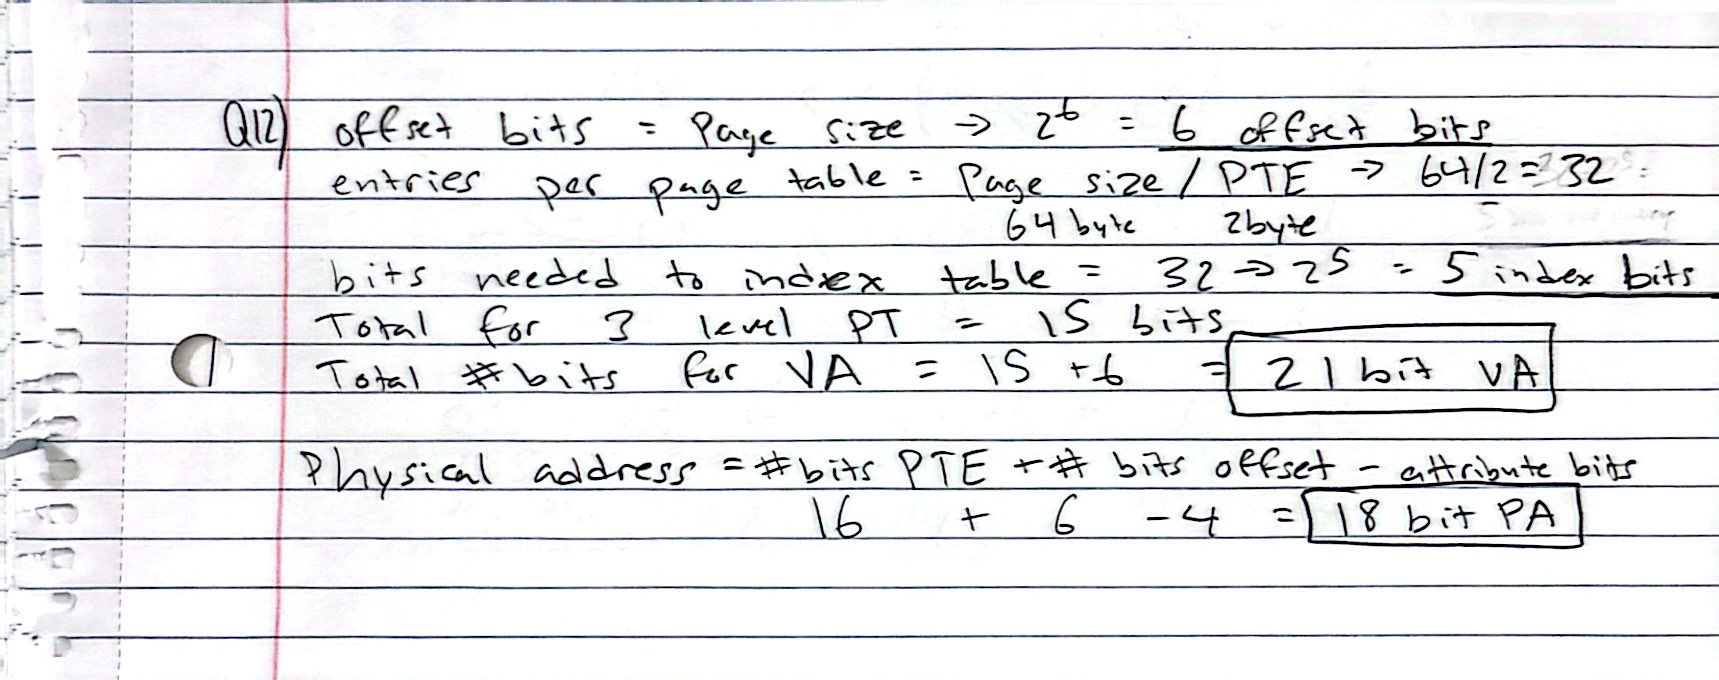 Q12) offset bits = Page size → 2^6 = 6 offset bits
entries per page table = Page size / PTE → 64/2 = 32
64 byte 2byte
bits needed to index table = 32 → 2^5 = 5 index bits
Total for 3 level PT = 15 bits
Total # bits for VA = 15 + 6 = 21 bit VA
Physical address = # bits PTE + # bits offset - attribute bits
16 + 6 - 4 = 18 bit PA